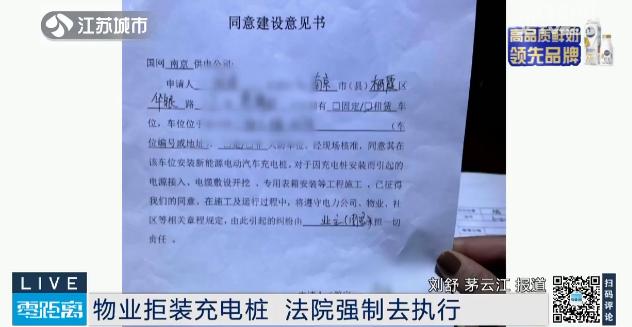 江苏城市
高品质鲜奶
领先品牌
同意建设意见书
国网 南京 供电公司:
申请人 南京 市(县)栖霞区
路 有 口固定/口租赁 车
位,车位位于 (车
位编号或地址) 人的车位,经现场核准,同意其在
该车位安装新能源电动汽车充电桩。对于因充电桩安装而引起的
电源接入、电缆敷设开挖、专用表箱安装等工程施工,已征得
我们的同意。在施工及运行过程中,将遵守电力公司、物业、社
区等相关章程规定,由此引起的纠纷由 承担一切
责任。
刘舒 茅云江 报道
扫码评论
LIVE
零距离
物业拒装充电桩 法院强制去执行